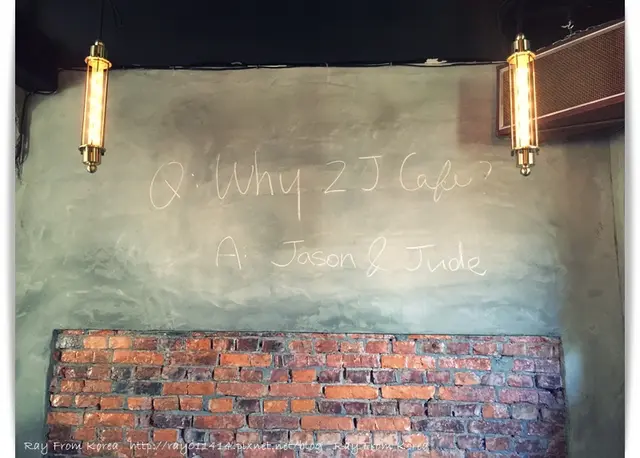 Q: Why 2 J Cafe?
A: Jason & Jude
Ray From Korea http://ray011414.pixnet.net/blog Ray From Korea